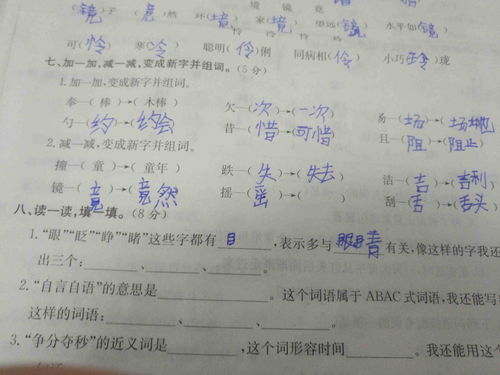 境 镜 竟
(镜)子 (竟)然 环(境) 家(境) 望远(镜) 水平如(镜)
怜 伶 怜 玲
可(怜) 寒(冷) 聪明(伶)俐 同病相(伶) 小巧(玲)珑
七、加一加,减一减,变成新字并组词。(5分)
1.加一加,变成新字并组词。
奉—(棒)→(木棒) 欠—(次)→(一次) 昜—(场)→(场地)
勺—(约)→(约会) 昔—(惜)→(可惜) 且—(阻)→(阻止)
2.减一减,变成新字并组词。
撞—(童)→(童年) 跌—(失)→(失去) 洁—(吉)→(吉利)
镜—(竟)→(竟然) 摇—(䍃)→( ) 刮—(舌)→(舌头)
八、读一读,填一填。(8分)
1.“眼”“眨”“睁”“睹”这些字都有目,表示多与眼睛有关,像这样的字我还
出三个:______、______、______。
2.“自言自语”的意思是______。这个词语属于ABAC式词语,我还能写
这样的词语:______、______、______。
3.“争分夺秒”的近义词是______,这个词形容时间______。我还能用这个